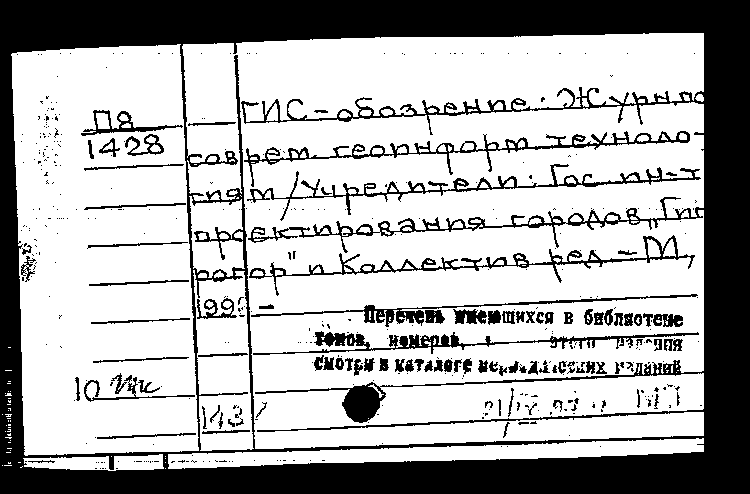 Пя
1428
ГИС-обозрение: Журн. по
соврем. геоинформ. техноло-
гиям / Учредители: Гос. ин-т
проектирования городов „Гип
рогор" и Коллектив ред. - М.,
199 -
Перечень имеющихся в библиотеке
томов, номеров, этого издания
смотри в каталоге периодических изданий
10
143